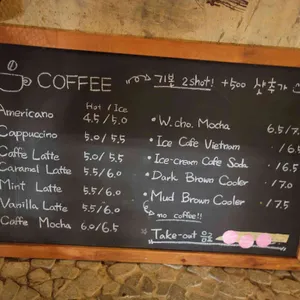 COFFEE
기본 2shot! +500 샷추가
Hot / Ice
Americano 4.5/5.0
Cappuccino 5.0/5.5
Caffe Latte 5.0/5.5
Caramel Latte 5.5/6.0
Mint Latte 5.5/6.0
Vanilla Latte 5.5/6.0
Caffe Mocha 6.0/6.5
• W.cho. Mocha 6.5/7
• Ice Cafe Vietnam 6.5
• Ice-cream Cafe Soda 6.5
• Dark Brown Cooler 7.0
• Mud Brown Cooler 7.5
no coffee!!
Take-out